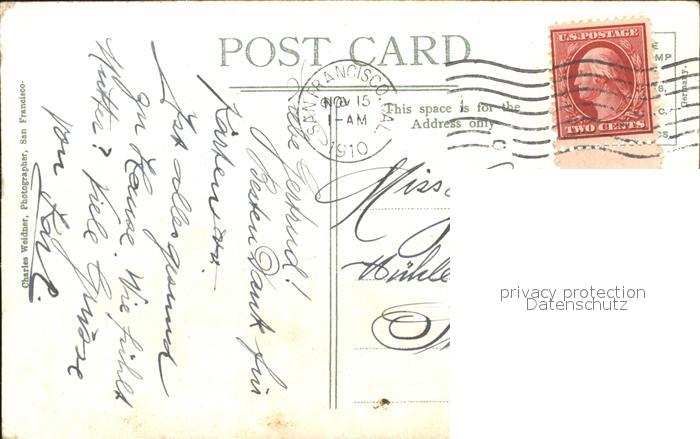 POST CARD
SAN FRANCISCO, CAL.
NOV 15
1-AM
1910
U.S. POSTAGE
TWO CENTS
This space is for the
Address only
Germany.
Charles Weidner, Photographer, San Francisco
Liebe Gertrud!
Besten Dank für
Karten
Ist alles gesund
zu Hause. Wie fühlt
Mutter? Viele Grüsse
von Karl.
Miss
Mühle
privacy protection
Datenschutz